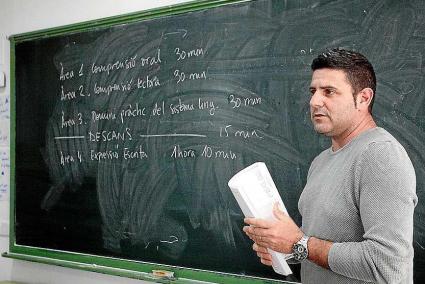 Àrea 1. Comprensió oral 30 min
Àrea 2. Comprensió lectora 30 min
Àrea 3. Domini pràctic del sistema ling. 30 min
DESCANS 15 min
Àrea 4. Expressió Escrita 1 hora 10 min